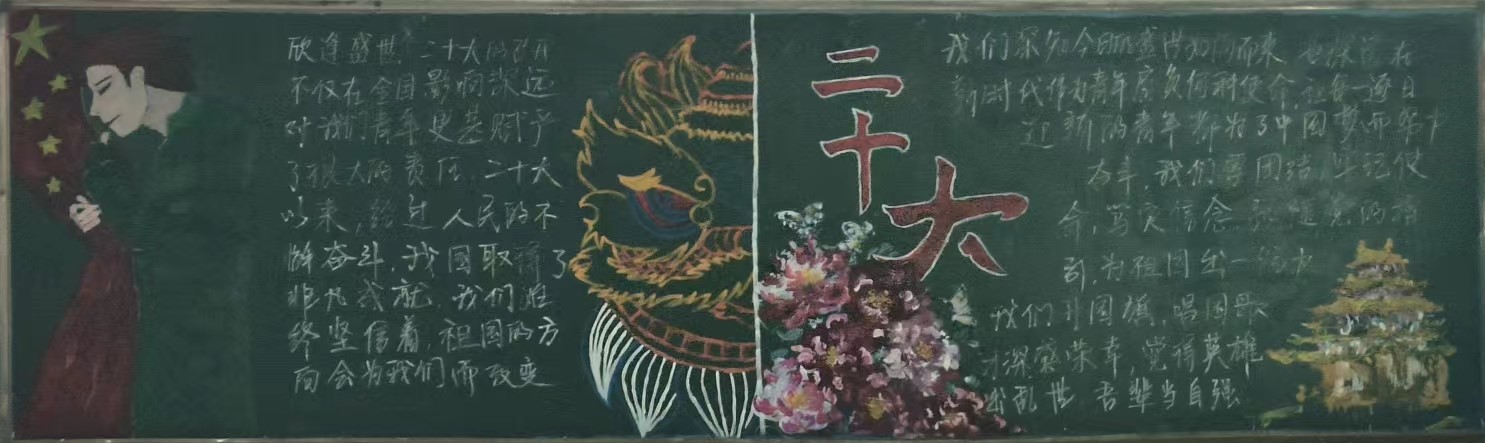 欣逢盛世 二十大的召开
不仅在全国影响深远
对我们青年更基赋予
了很大的责任,二十大
以来,经过人民的不
懈奋斗,我国取得了
非凡成就,我们始
终坚信着,祖国的方
向会为我们而改变
二十大
我们深知今日的盛世 而来 在
新时代作为青年肩负何种使命,让每一逐日
迎新的青年都为了中国梦而努力
奋斗,我们要团结 牢记使
命,笃实信念
为祖国出一份力
我们升国旗,唱国歌
深感荣幸,觉得英雄
出乱世 吾辈当自强